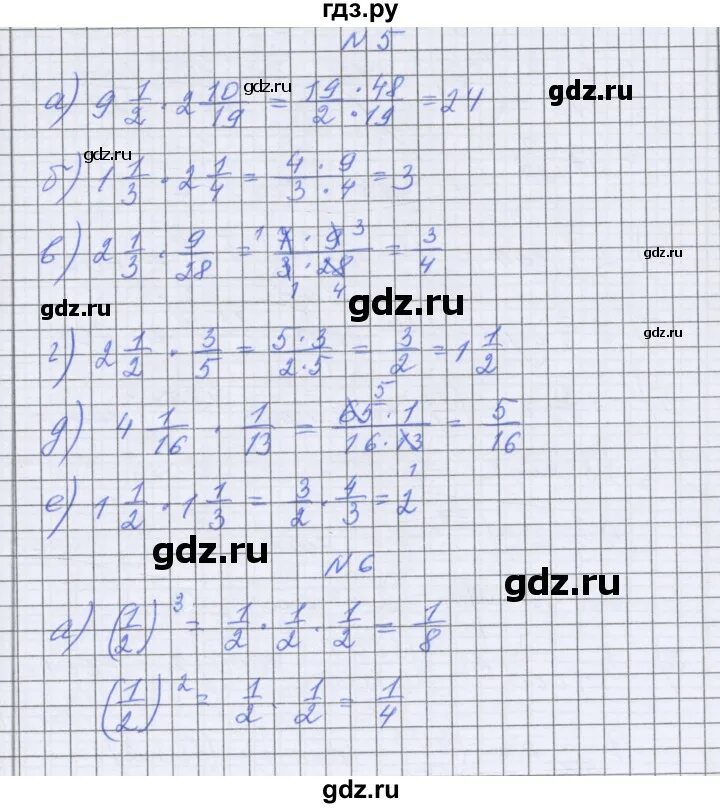 гдз.ру
N 5
gdz.ru
а) 9 1/2 · 2 10/19 = 19 · 48 / 2 · 19 = 24
gdz.ru
gdz.ru
б) 1 1/3 · 2 1/4 = 4 · 9 / 3 · 4 = 3
в) 2 1/3 · 9/28 = 1 7 · 9 3 / 3 · 28 1 4 = 3/4
gdz.ru
gdz.ru
gdz.ru
г) 2 1/2 · 3/5 = 5 · 3 / 2 · 5 = 3/2 = 1 1/2
gdz.ru
д) 4 1/16 · 1/13 = 65 5 · 1 / 16 · 13 1 = 5/16
е) 1 1/2 · 1 1/3 = 3/2 · 4/3 = 2
gdz.ru
N 6
gdz.ru
а) (1/2)³ = 1/2 · 1/2 · 1/2 = 1/8
(1/2)² = 1/2 · 1/2 = 1/4
gdz.ru